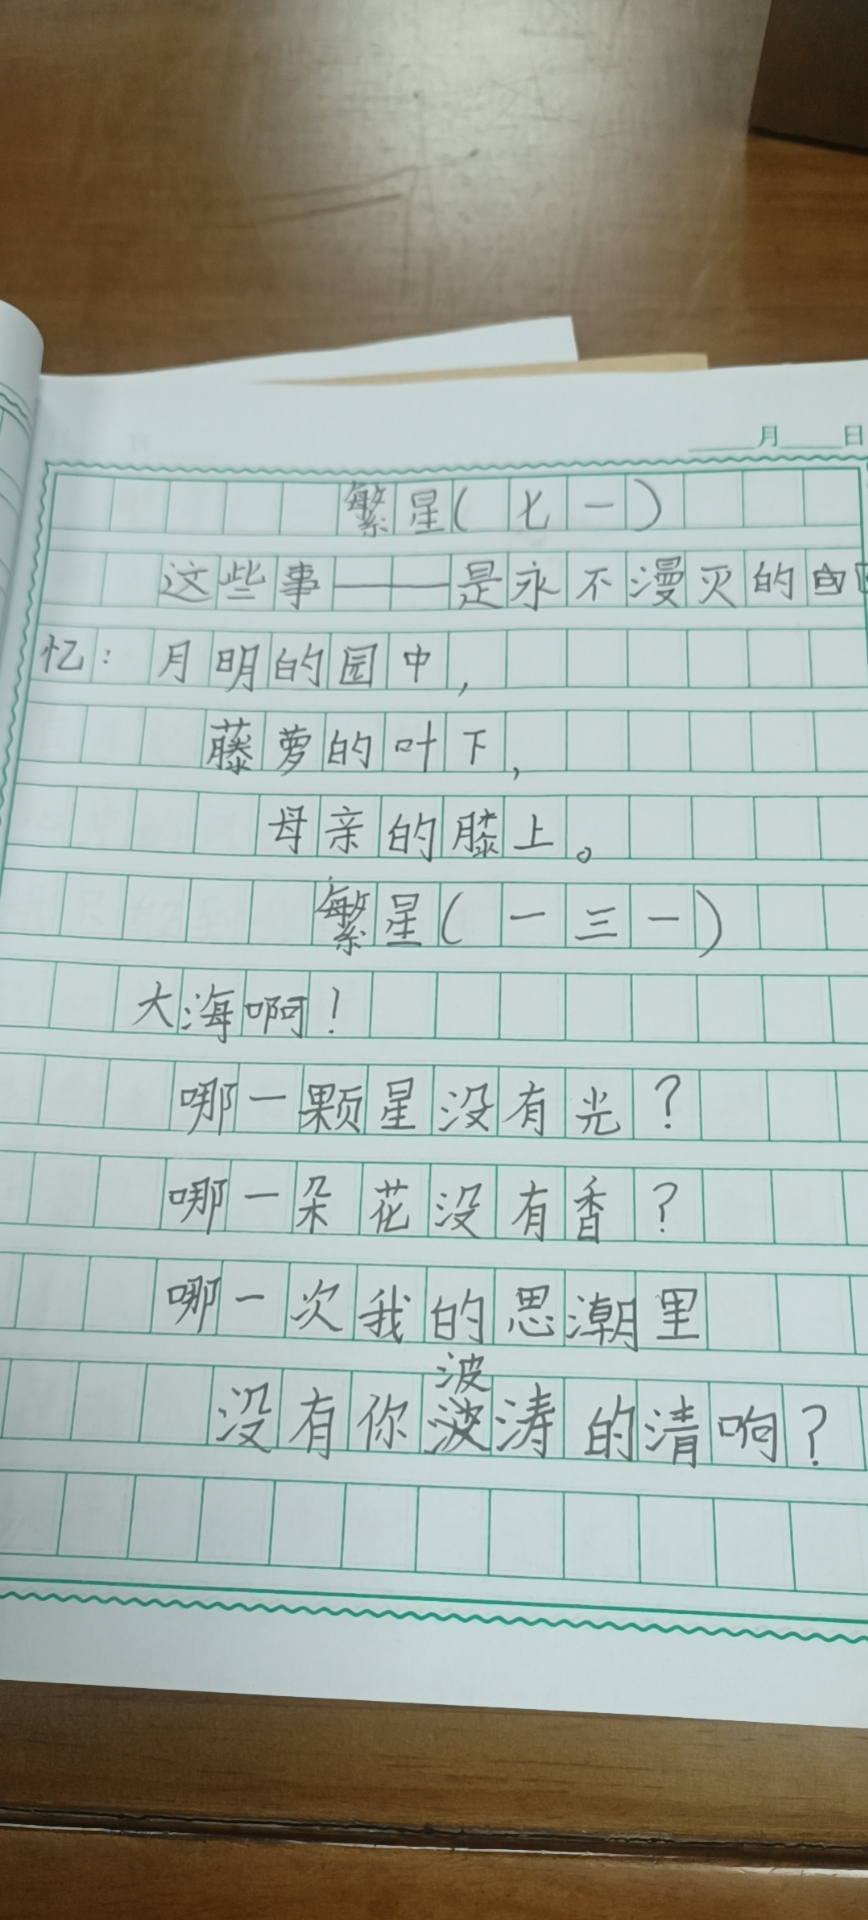 月 日
繁星（七一）
这些事——是永不漫灭的回
忆：月明的园中，
藤萝的叶下，
母亲的膝上。
繁星（一三一）
大海啊！
哪一颗星没有光？
哪一朵花没有香？
哪一次我的思潮里
波
没有你涛的清响？